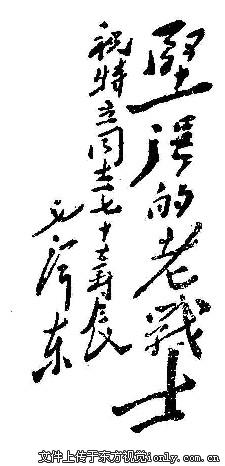 堅强的老戰士
祝特立同志七十寿辰
毛泽东
文件上传于东方视觉ionly.com.cn